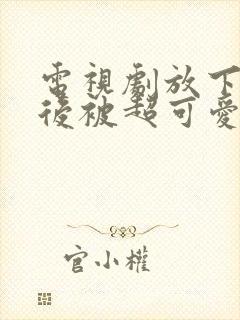 電視劇放下
後被超可愛
官小權